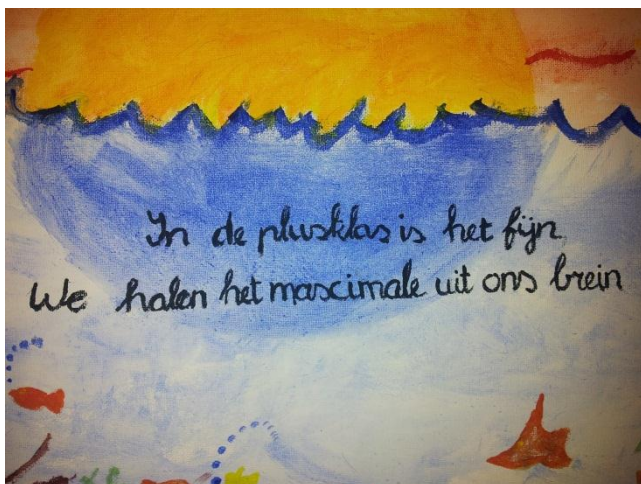 In de plusklas is het fijn
We halen het maximale uit ons brein